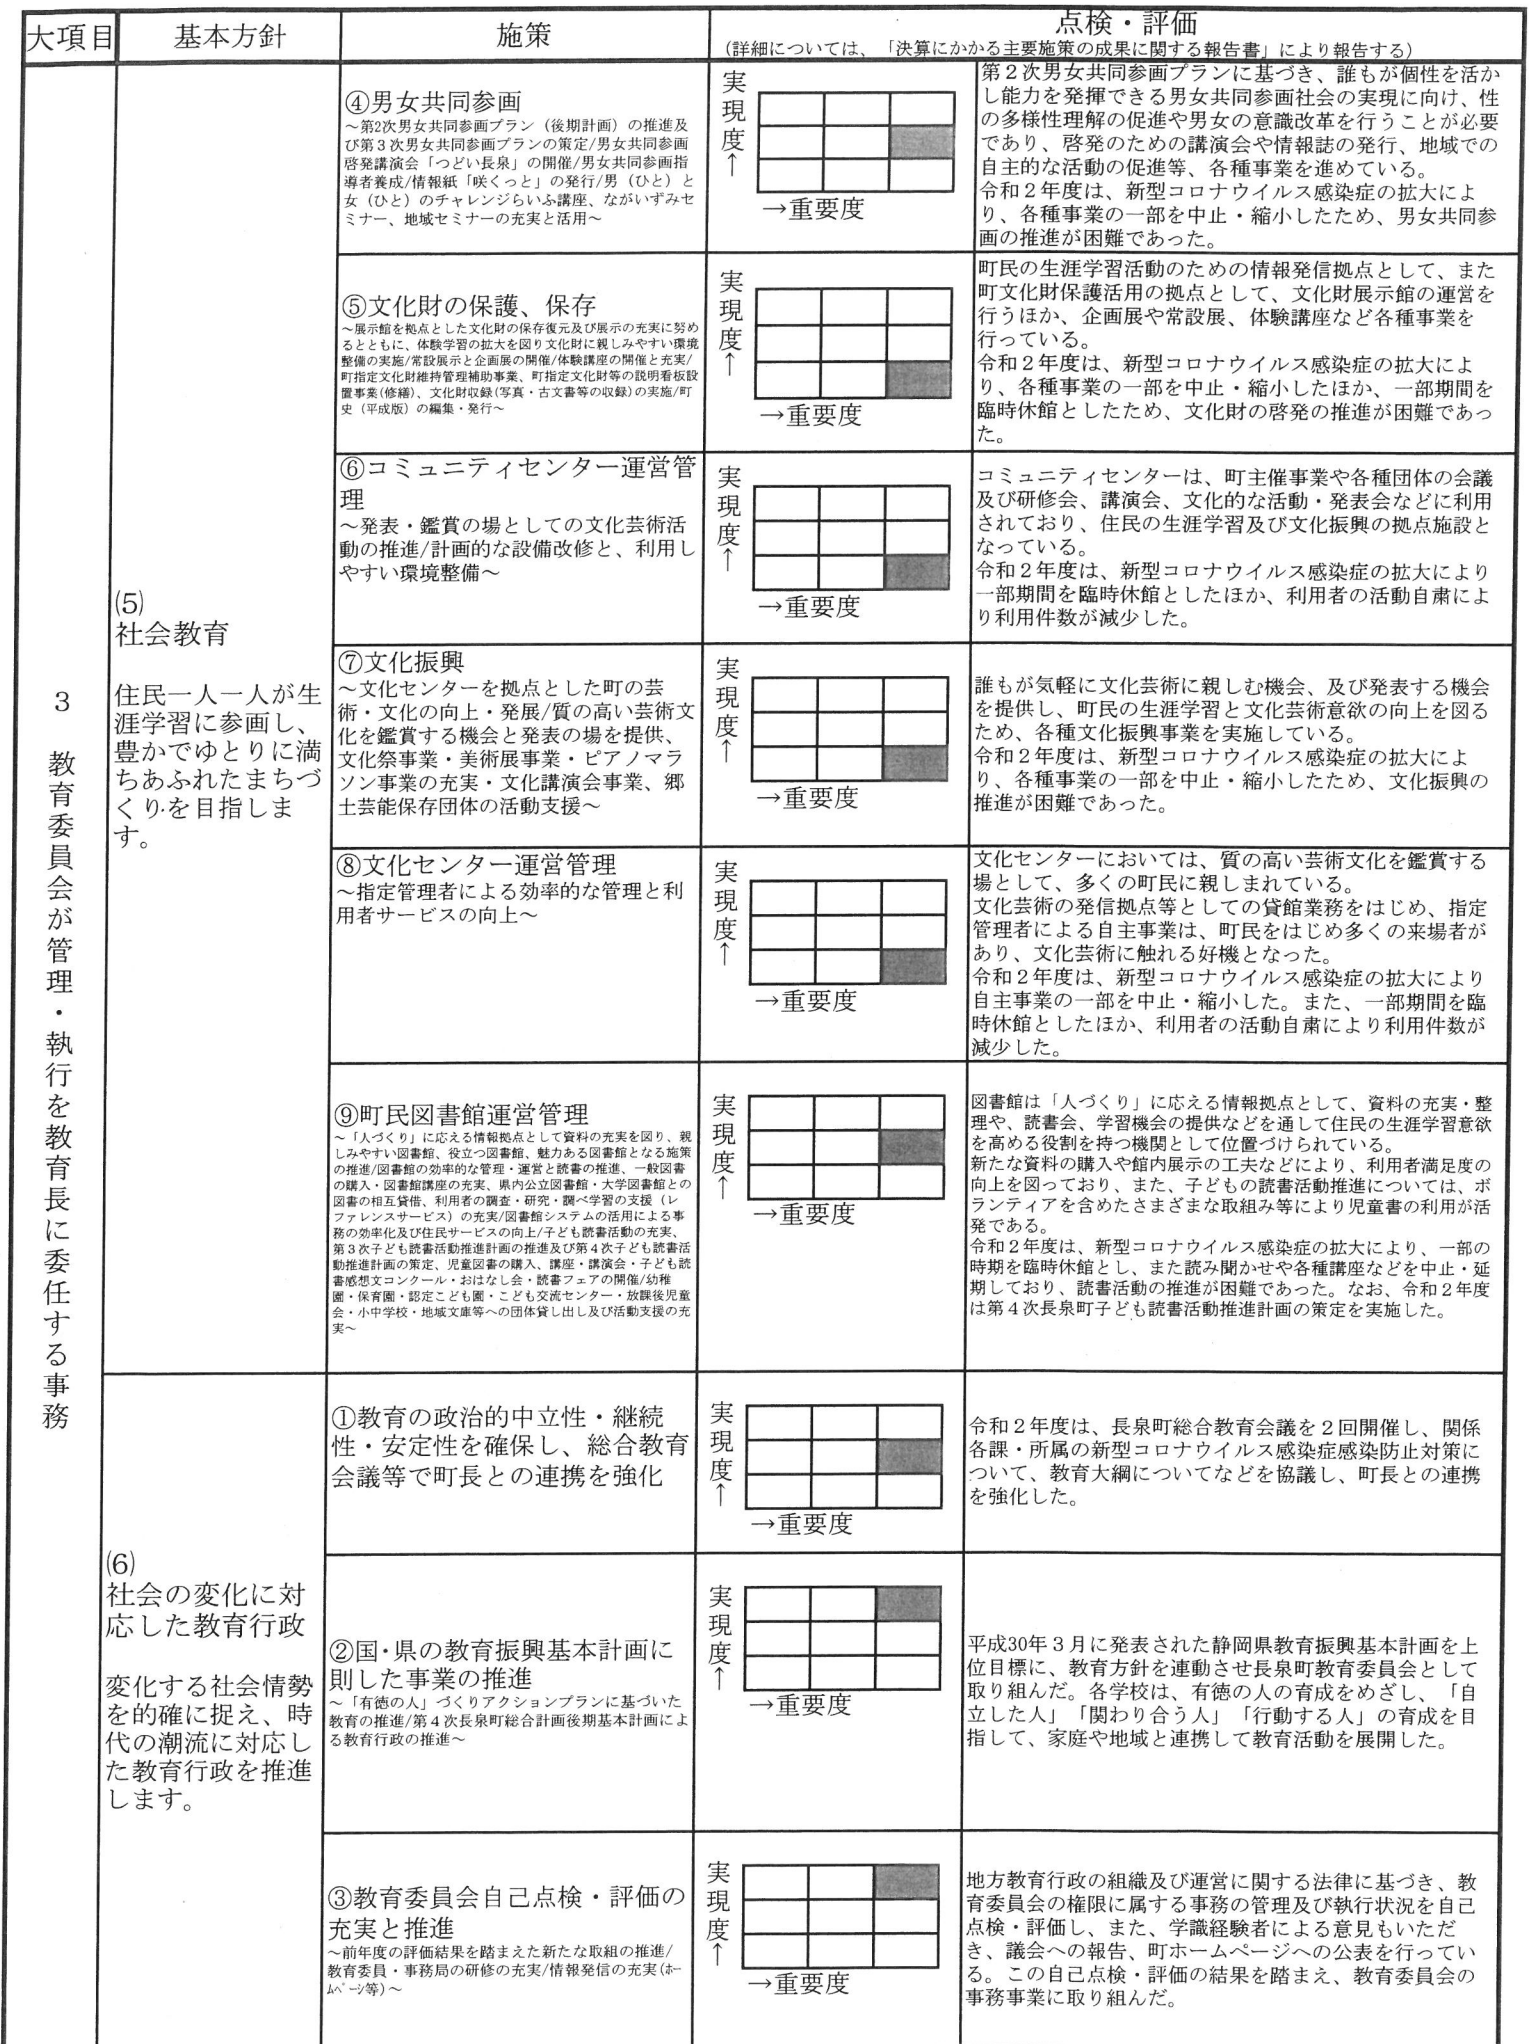 大項目
基本方針
施策
点検・評価
(詳細については、「決算にかかる主要施策の成果に関する報告書」により報告する)
3　教育委員会が管理・執行を教育長に委任する事務
(5)
社会教育
住民一人一人が生
涯学習に参画し、
豊かでゆとりに満
ちあふれたまちづ
くりを目指しま
す。
④男女共同参画
～第2次男女共同参画プラン（後期計画）の推進及
び第３次男女共同参画プランの策定/男女共同参画
啓発講演会「つどい長泉」の開催/男女共同参画指
導者養成/情報紙「咲くっと」の発行/男（ひと）と
女（ひと）のチャレンジらいふ講座、ながいずみセ
ミナー、地域セミナーの充実と活用～
実現度↑
→重要度
第２次男女共同参画プランに基づき、誰もが個性を活か
し能力を発揮できる男女共同参画社会の実現に向け、性
の多様性理解の促進や男女の意識改革を行うことが必要
であり、啓発のための講演会や情報誌の発行、地域での
自主的な活動の促進等、各種事業を進めている。
令和２年度は、新型コロナウイルス感染症の拡大によ
り、各種事業の一部を中止・縮小したため、男女共同参
画の推進が困難であった。
⑤文化財の保護、保存
～展示館を拠点とした文化財の保存復元及び展示の充実に努め
るとともに、体験学習の拡大を図り文化財に親しみやすい環境
整備の実施/常設展示と企画展の開催/体験講座の開催と充実/
町指定文化財維持管理補助事業、町指定文化財等の説明看板設
置事業(修繕)、文化財収録(写真・古文書等の収録)の実施/町
史（平成版）の編集・発行～
実現度↑
→重要度
町民の生涯学習活動のための情報発信拠点として、また
町文化財保護活用の拠点として、文化財展示館の運営を
行うほか、企画展や常設展、体験講座など各種事業を
行っている。
令和２年度は、新型コロナウイルス感染症の拡大によ
り、各種事業の一部を中止・縮小したほか、一部期間を
臨時休館としたため、文化財の啓発の推進が困難であっ
た。
⑥コミュニティセンター運営管
理
～発表・鑑賞の場としての文化芸術活
動の推進/計画的な設備改修と、利用し
やすい環境整備～
実現度↑
→重要度
コミュニティセンターは、町主催事業や各種団体の会議
及び研修会、講演会、文化的な活動・発表会などに利用
されており、住民の生涯学習及び文化振興の拠点施設と
なっている。
令和２年度は、新型コロナウイルス感染症の拡大により
一部期間を臨時休館としたほか、利用者の活動自粛によ
り利用件数が減少した。
⑦文化振興
～文化センターを拠点とした町の芸
術・文化の向上・発展/質の高い芸術文
化を鑑賞する機会と発表の場を提供、
文化祭事業・美術展事業・ピアノマラ
ソン事業の充実・文化講演会事業、郷
土芸能保存団体の活動支援～
実現度↑
→重要度
誰もが気軽に文化芸術に親しむ機会、及び発表する機会
を提供し、町民の生涯学習と文化芸術意欲の向上を図る
ため、各種文化振興事業を実施している。
令和２年度は、新型コロナウイルス感染症の拡大によ
り、各種事業の一部を中止・縮小したため、文化振興の
推進が困難であった。
⑧文化センター運営管理
～指定管理者による効率的な管理と利
用者サービスの向上～
実現度↑
→重要度
文化センターにおいては、質の高い芸術文化を鑑賞する
場として、多くの町民に親しまれている。
文化芸術の発信拠点等としての貸館業務をはじめ、指定
管理者による自主事業は、町民をはじめ多くの来場者が
あり、文化芸術に触れる好機となった。
令和２年度は、新型コロナウイルス感染症の拡大により
自主事業の一部を中止・縮小した。また、一部期間を臨
時休館としたほか、利用者の活動自粛により利用件数が
減少した。
⑨町民図書館運営管理
～「人づくり」に応える情報拠点として資料の充実を図り、親
しみやすい図書館、役立つ図書館、魅力ある図書館となる施策
の推進/図書館の効率的な管理・運営と読書の推進、一般図書
の購入・図書館講座の充実、県内公立図書館・大学図書館との
図書の相互貸借、利用者の調査・研究・調べ学習の支援（レ
ファレンスサービス）の充実/図書館システムの活用による事
務の効率化及び住民サービスの向上/子ども読書活動の充実、
第３次子ども読書活動推進計画の推進及び第４次子ども読書活
動推進計画の策定、児童図書の購入、講座・講演会・子ども読
書感想文コンクール・おはなし会・読書フェアの開催/幼稚
園・保育園・認定こども園・こども交流センター・放課後児童
会・小中学校・地域文庫等への団体貸し出し及び活動支援の充
実～
実現度↑
→重要度
図書館は「人づくり」に応える情報拠点として、資料の充実・整
理や、読書会、学習機会の提供などを通して住民の生涯学習意欲
を高める役割を持つ機関として位置づけられている。
新たな資料の購入や館内展示の工夫などにより、利用者満足度の
向上を図っており、また、子どもの読書活動推進については、ボ
ランティアを含めたさまざまな取組み等により児童書の利用が活
発である。
令和２年度は、新型コロナウイルス感染症の拡大により、一部の
時期を臨時休館とし、また読み聞かせや各種講座などを中止・延
期しており、読書活動の推進が困難であった。なお、令和２年度
は第４次長泉町子ども読書活動推進計画の策定を実施した。
(6)
社会の変化に対
応した教育行政
変化する社会情勢
を的確に捉え、時
代の潮流に対応し
た教育行政を推進
します。
①教育の政治的中立性・継続
性・安定性を確保し、総合教育
会議等で町長との連携を強化
実現度↑
→重要度
令和２年度は、長泉町総合教育会議を２回開催し、関係
各課・所属の新型コロナウイルス感染症感染防止対策に
ついて、教育大綱についてなどを協議し、町長との連携
を強化した。
②国・県の教育振興基本計画に
則した事業の推進
～「有徳の人」づくりアクションプランに基づいた
教育の推進/第４次長泉町総合計画後期基本計画によ
る教育行政の推進～
実現度↑
→重要度
平成30年３月に発表された静岡県教育振興基本計画を上
位目標に、教育方針を連動させ長泉町教育委員会として
取り組んだ。各学校は、有徳の人の育成をめざし、「自
立した人」「関わり合う人」「行動する人」の育成を目
指して、家庭や地域と連携して教育活動を展開した。
③教育委員会自己点検・評価の
充実と推進
～前年度の評価結果を踏まえた新たな取組の推進/
教育委員・事務局の研修の充実/情報発信の充実(ﾎｰ
ﾑﾍﾟｰｼﾞ等)～
実現度↑
→重要度
地方教育行政の組織及び運営に関する法律に基づき、教
育委員会の権限に属する事務の管理及び執行状況を自己
点検・評価し、また、学識経験者による意見もいただ
き、議会への報告、町ホームページへの公表を行ってい
る。この自己点検・評価の結果を踏まえ、教育委員会の
事務事業に取り組んだ。